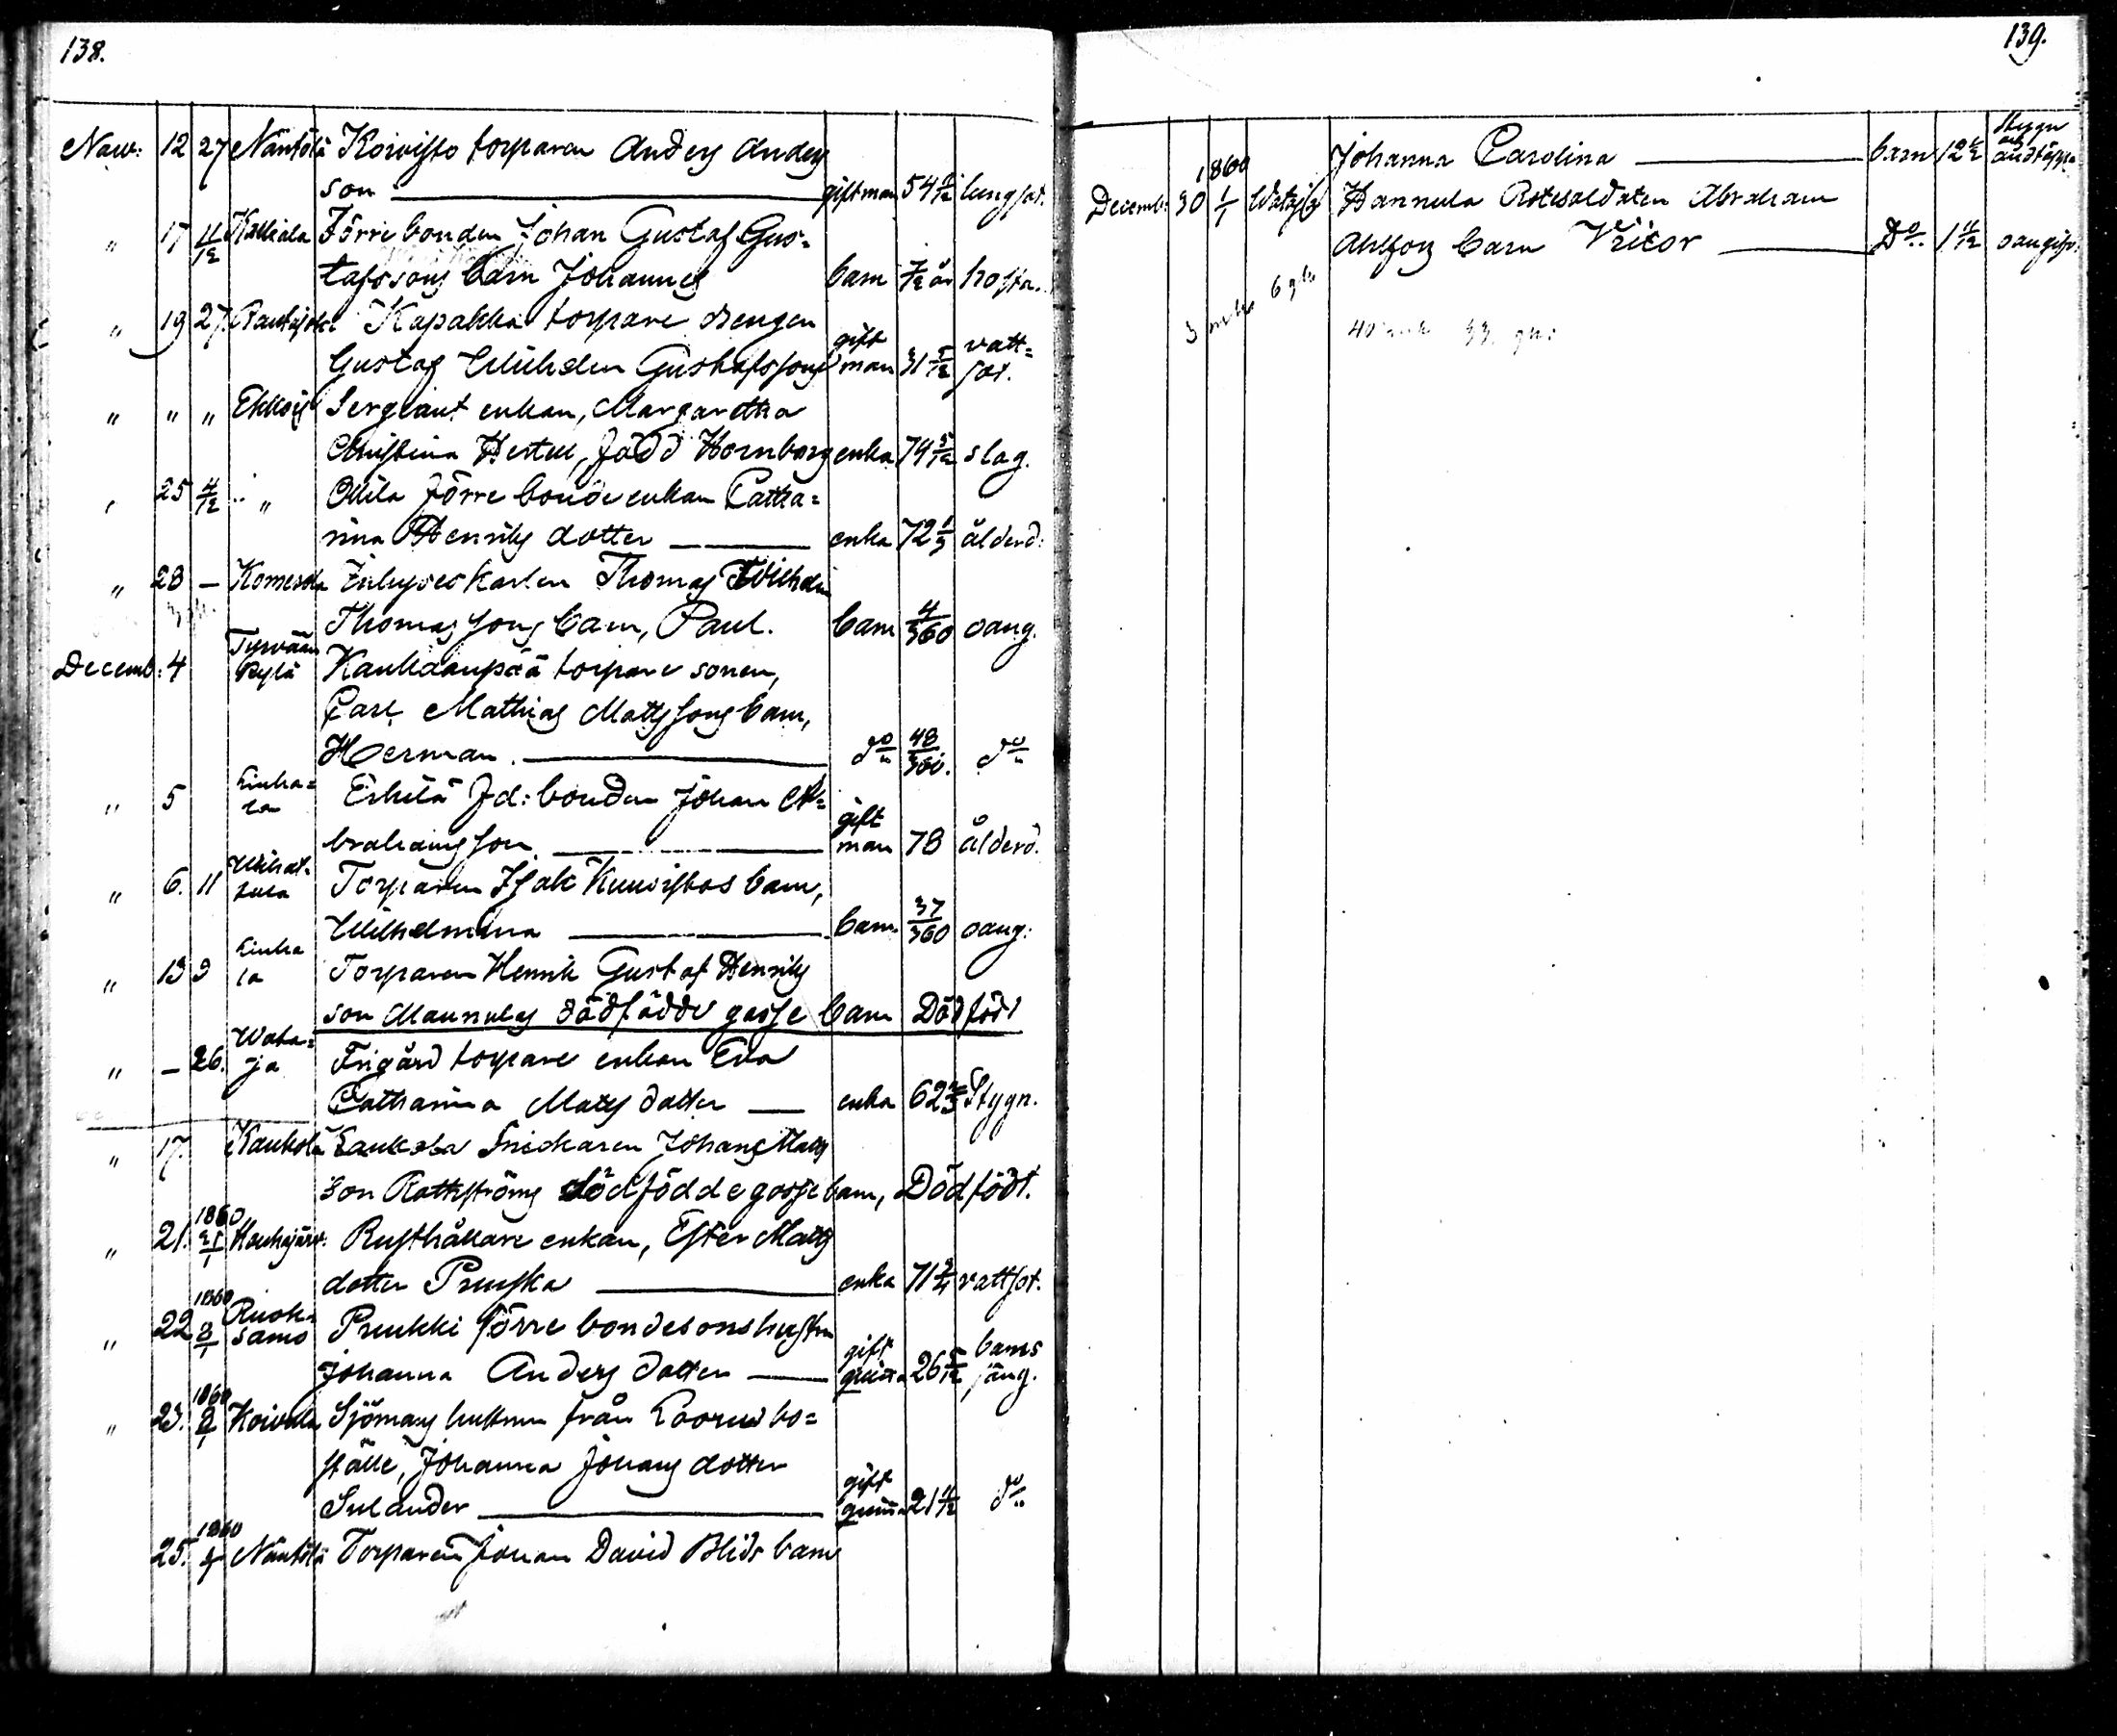 138.
Nov: 12 27 Näntölä Koivisto torparen Anders Anders
son giftman 54 lungsot.
" 17 4/12 Kalliala Förre bonden Johan Gustaf Gus=
tafssons barn Johannes barn 7/12 år hosta.
" 19 27. Kapakka torpare drengen
Gustaf Wilhelm Gustafssons gift man 31 5/12 vatt=sot.
" " " Ekkois Sergeant enkan, Margaretha
Christina Hertell, född Hornborg enka 79 5/12 slag.
" 25 4/12 " " Ollila förre bonde enkan Catha=
rina Henriks dotter enka 72 1/3 ålderd:
" 28 — Thomas Wilhelm
Thomas sons barn, Paul. barn 4/360 oang.
Decemb: 4 Tyrvään Kylä Kankaanpää torpare sonen,
Carl Mathias Matts sons barn,
Herman. do 48/360. do
" 5 Liuha=la Erkilä Fd: bonden Johan A=
brahamsson gift man 78 ålderd.
" 6. 11 Torparen Isak Kuusistos barn,
Wilhelmina barn 37/360 oang:
" 13 9 Liuha la Torparen Henrik Gustaf Henriks
son Maunulas dödfödde gosse barn Dödfödt
" — 26. Wata=ja Frigård torpare enkan Eva
Catharina Matts dotter enka 62 2/3 Stygn.
" 17. Kaukola Laukola Snickaren Johans Matts
son dödfödde gosse barn, Dödfödt.
" 21. 1860 21/1 Houhajärv. Rusthållare enkan, Ester Matts
dotter Pruska enka 71 3/4 vattsot.
" 22 1860 8/1 Ruok=samo Pruukki förre bondesonshustru
Johanna Anders dotter gift quinna 26 5/12 barns säng.
" 23. 1860 8/1 Koivula Sjömans hustrun från bo=
ställe, Johanna Johans dotter
Sulander gift quinna 21 4/12 do
25. 1860 Näntölä Torparen Johan David Blids barn
139.
Johanna Carolina barn 12 Stygn
1860
Decemb: 30 1/1 Hannula Rotesoldaten Abraham
Ahlfors barn Victor Do 1 4/12 oangifv.
3 6
40 33